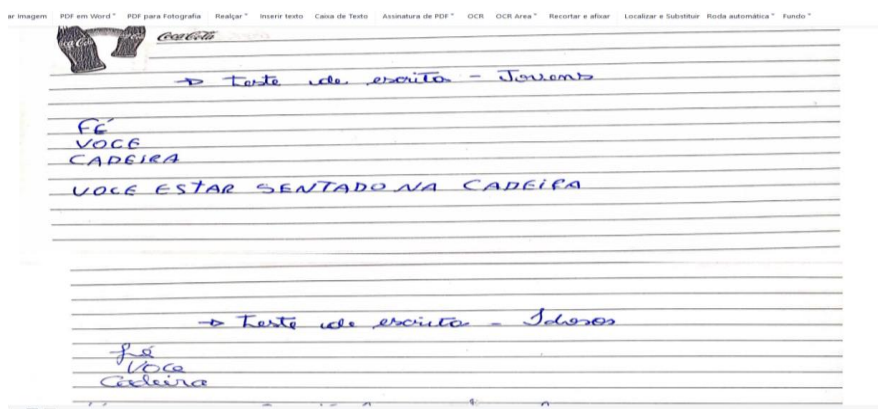 ar Imagem PDF em Word PDF para Fotografia Realçar Inserir texto Caixa de Texto Assinatura de PDF OCR OCR Area Recortar e afixar Localizar e Substituir Roda automática Fundo
Coca Cola
→ Teste de escrita - Jovens
FÉ
VOCE
CADEIRA
VOCE ESTAR SENTADO NA CADEIRA
→ Teste de escrita - Idosos
Fé
Voce
Cadeira